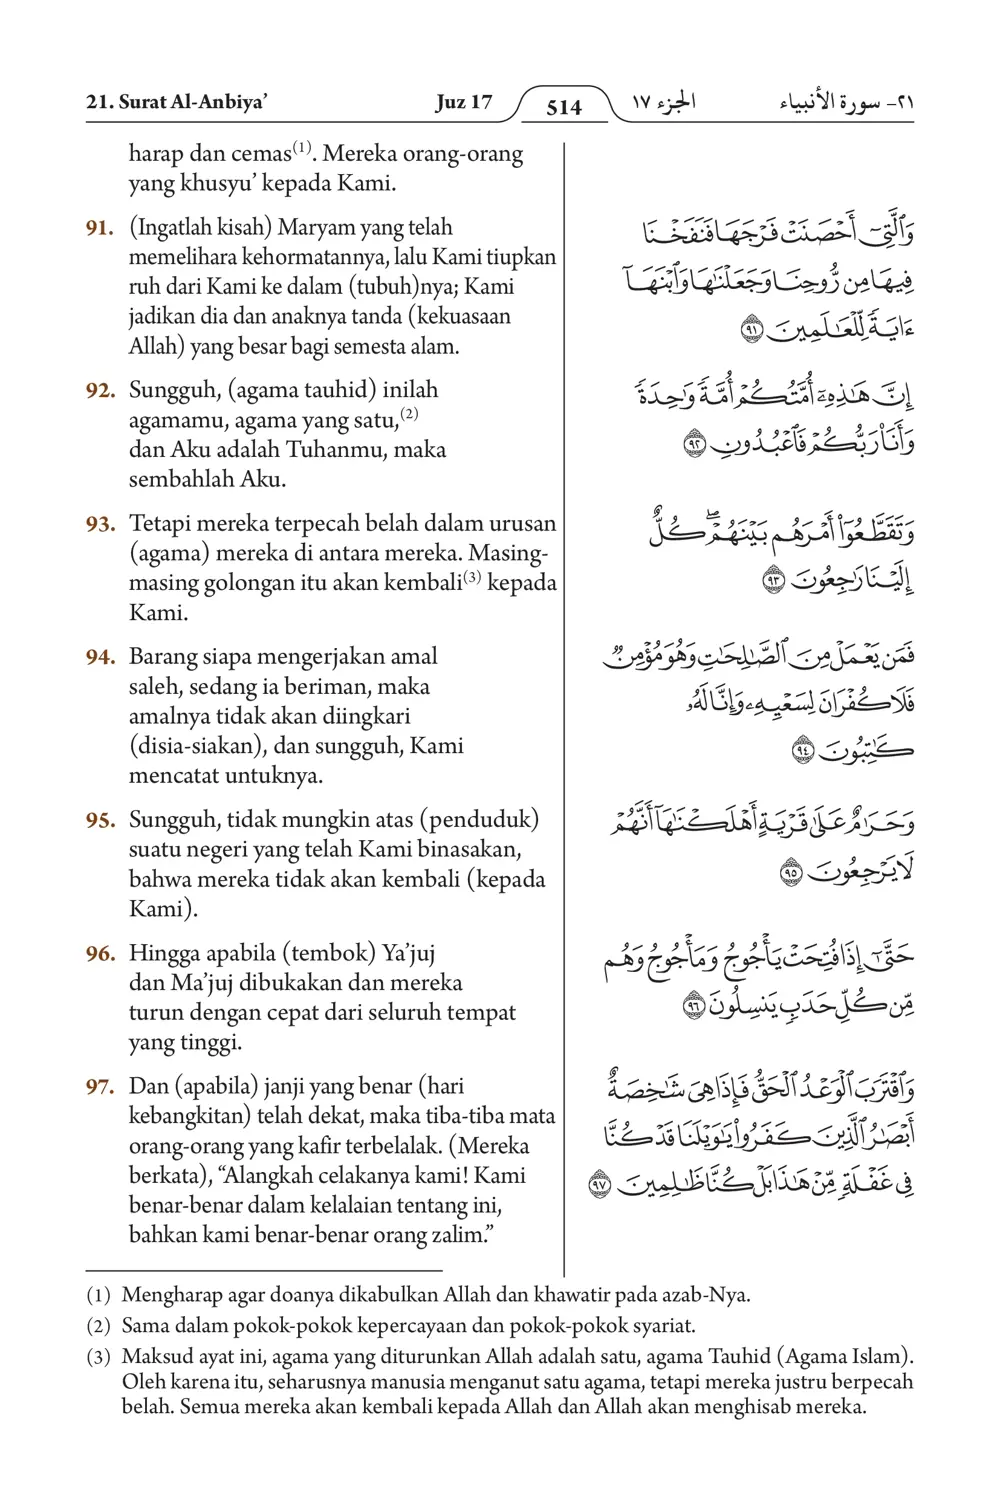 21. Surat Al-Anbiya’ Juz 17 514 الجزء ١٧ ٢١- سورة الأنبياء
harap dan cemas(1). Mereka orang-orang
yang khusyu’ kepada Kami.
91. (Ingatlah kisah) Maryam yang telah
memelihara kehormatannya, lalu Kami tiupkan
ruh dari Kami ke dalam (tubuh)nya; Kami
jadikan dia dan anaknya tanda (kekuasaan
Allah) yang besar bagi semesta alam.
وَٱلَّتِيٓ أَحۡصَنَتۡ فَرۡجَهَا فَنَفَخۡنَا
فِيهَا مِن رُّوحِنَا وَجَعَلۡنَٰهَا وَٱبۡنَهَآ
ءَايَةٗ لِّلۡعَٰلَمِينَ ٩١
92. Sungguh, (agama tauhid) inilah
agamamu, agama yang satu,(2)
dan Aku adalah Tuhanmu, maka
sembahlah Aku.
إِنَّ هَٰذِهِۦٓ أُمَّتُكُمۡ أُمَّةٗ وَٰحِدَةٗ
وَأَنَا۠ رَبُّكُمۡ فَٱعۡبُدُونِ ٩٢
93. Tetapi mereka terpecah belah dalam urusan
(agama) mereka di antara mereka. Masing-
masing golongan itu akan kembali(3) kepada
Kami.
وَتَقَطَّعُوٓاْ أَمۡرَهُم بَيۡنَهُمۡۖ كُلٌّ
إِلَيۡنَا رَٰجِعُونَ ٩٣
94. Barang siapa mengerjakan amal
saleh, sedang ia beriman, maka
amalnya tidak akan diingkari
(disia-siakan), dan sungguh, Kami
mencatat untuknya.
فَمَن يَعۡمَلۡ مِنَ ٱلصَّٰلِحَٰتِ وَهُوَ مُؤۡمِنٞ
فَلَا كُفۡرَانَ لِسَعۡيِهِۦ وَإِنَّا لَهُۥ
كَٰتِبُونَ ٩٤
95. Sungguh, tidak mungkin atas (penduduk)
suatu negeri yang telah Kami binasakan,
bahwa mereka tidak akan kembali (kepada
Kami).
وَحَرَٰمٌ عَلَىٰ قَرۡيَةٍ أَهۡلَكۡنَٰهَآ أَنَّهُمۡ
لَا يَرۡجِعُونَ ٩٥
96. Hingga apabila (tembok) Ya’juj
dan Ma’juj dibukakan dan mereka
turun dengan cepat dari seluruh tempat
yang tinggi.
حَتَّىٰٓ إِذَا فُتِحَتۡ يَأۡجُوجُ وَمَأۡجُوجُ وَهُم
مِّن كُلِّ حَدَبٖ يَنسِلُونَ ٩٦
97. Dan (apabila) janji yang benar (hari
kebangkitan) telah dekat, maka tiba-tiba mata
orang-orang yang kafir terbelalak. (Mereka
berkata), “Alangkah celakanya kami! Kami
benar-benar dalam kelalaian tentang ini,
bahkan kami benar-benar orang zalim.”
وَٱقۡتَرَبَ ٱلۡوَعۡدُ ٱلۡحَقُّ فَإِذَا هِيَ شَٰخِصَةٌ
أَبۡصَٰرُ ٱلَّذِينَ كَفَرُواْ يَٰوَيۡلَنَا قَدۡ كُنَّا
فِي غَفۡلَةٖ مِّنۡ هَٰذَا بَلۡ كُنَّا ظَٰلِمِينَ ٩٧
(1) Mengharap agar doanya dikabulkan Allah dan khawatir pada azab-Nya.
(2) Sama dalam pokok-pokok kepercayaan dan pokok-pokok syariat.
(3) Maksud ayat ini, agama yang diturunkan Allah adalah satu, agama Tauhid (Agama Islam).
Oleh karena itu, seharusnya manusia menganut satu agama, tetapi mereka justru berpecah
belah. Semua mereka akan kembali kepada Allah dan Allah akan menghisab mereka.